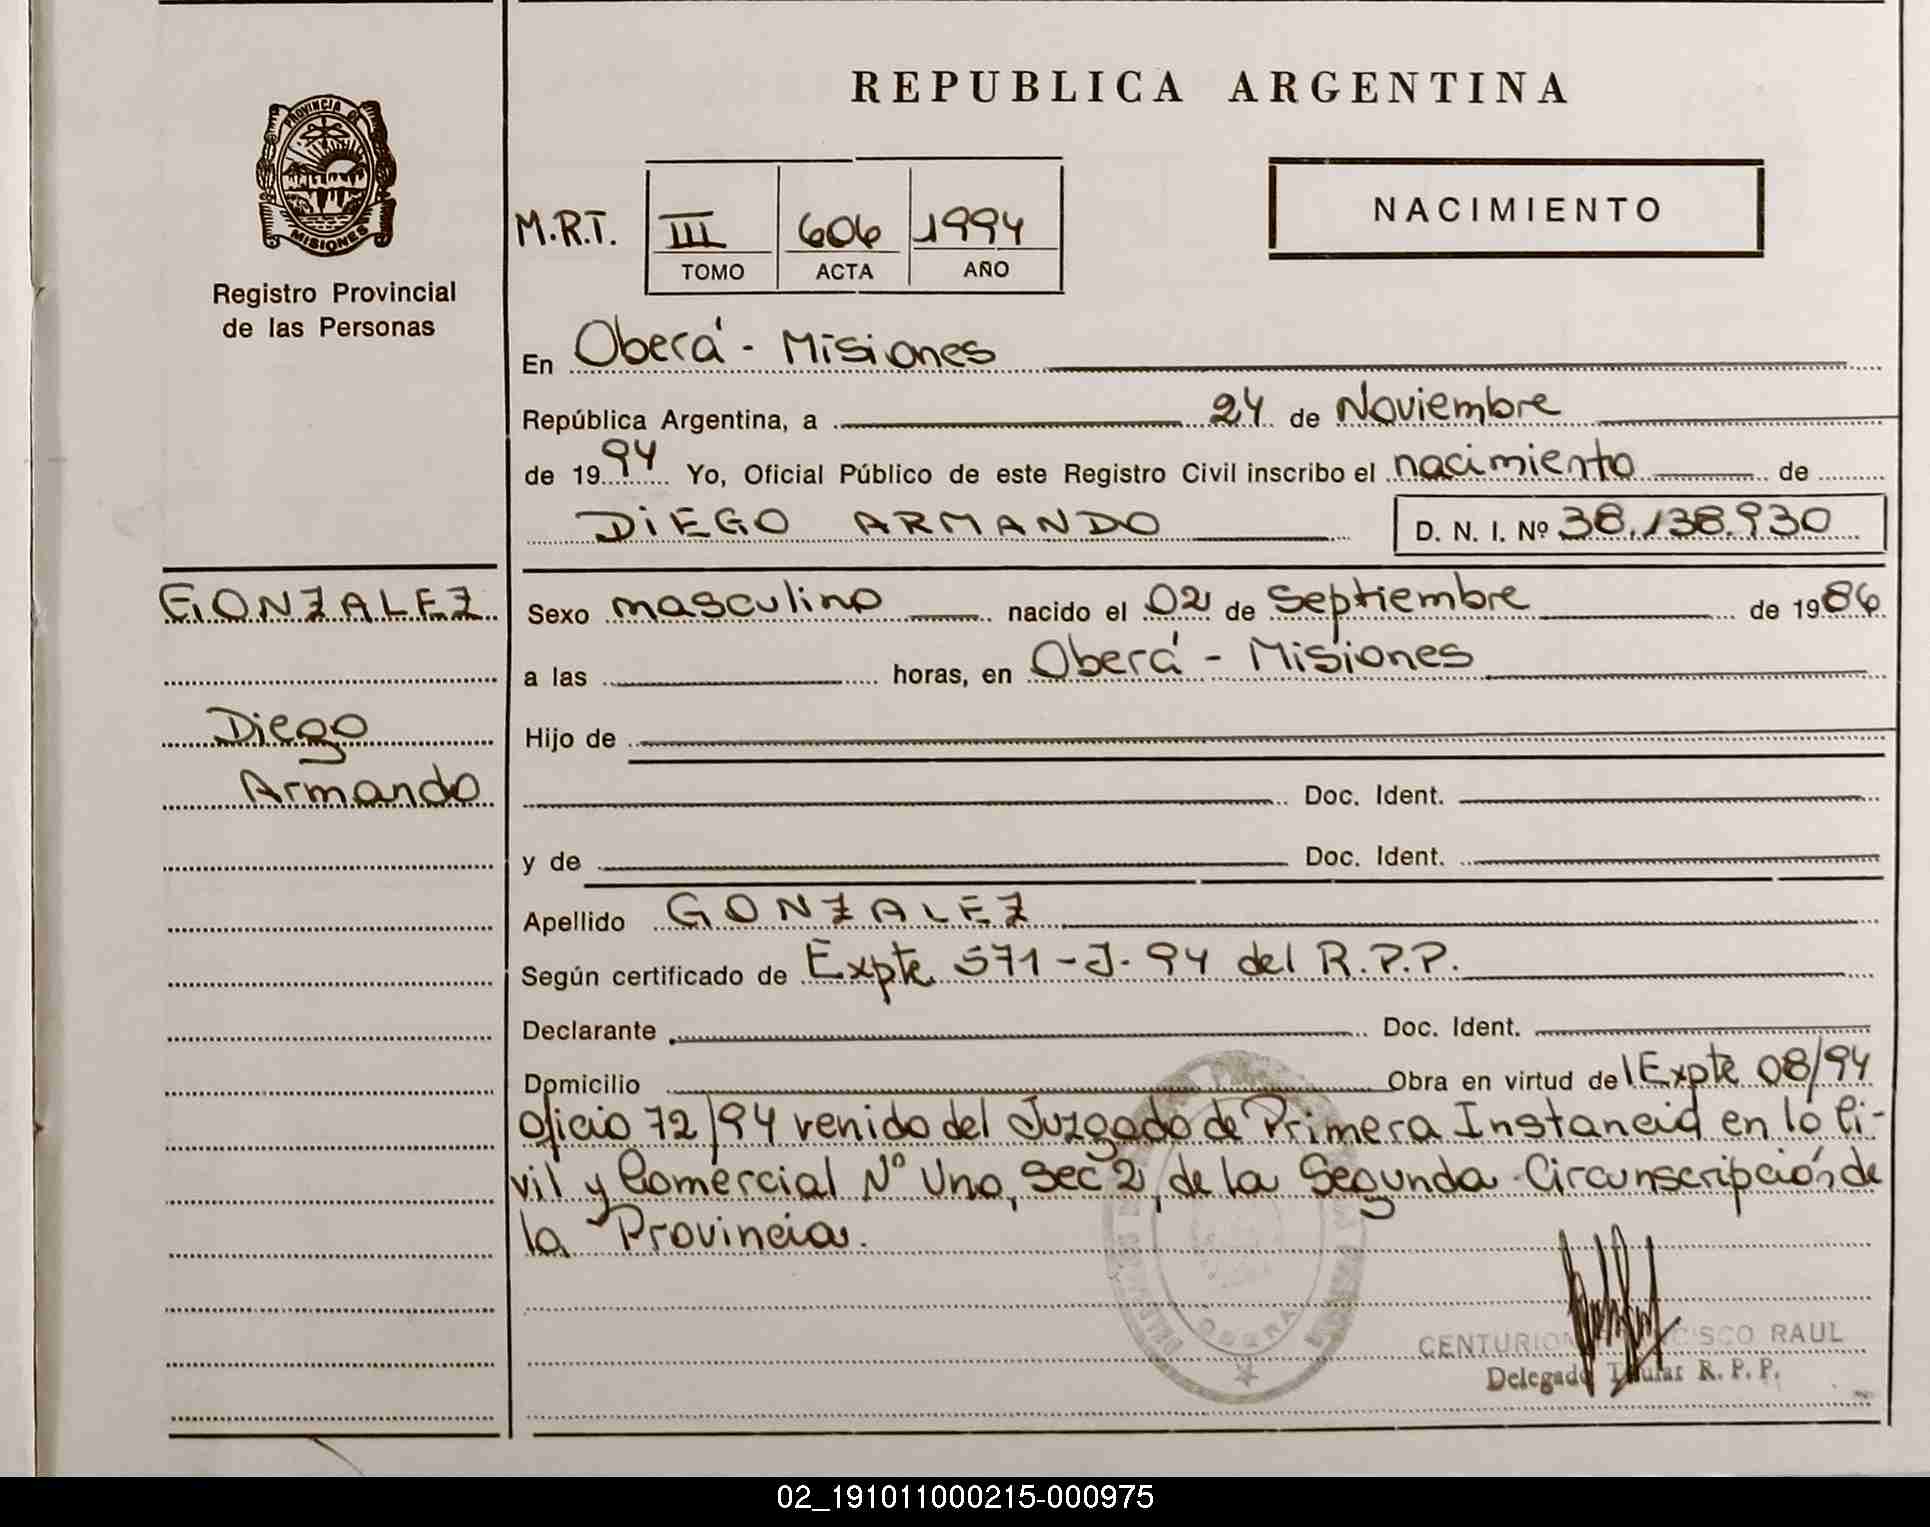 REPUBLICA ARGENTINA
PROVINCIA DE
MISIONES
Registro Provincial
de las Personas
M.R.T. III 606 1994
TOMO ACTA AÑO
NACIMIENTO
En Oberá - Misiones
República Argentina, a 24 de Noviembre
de 1994 Yo, Oficial Público de este Registro Civil inscribo el nacimiento de
DIEGO ARMANDO D. N. I. Nº 38.138.930
GONZALEZ
Diego
Armando
Sexo masculino nacido el 02 de Septiembre de 1986
a las horas, en Oberá - Misiones
Hijo de
Doc. Ident.
y de Doc. Ident.
Apellido GONZALEZ
Según certificado de Expte 571-J-94 del R.P.P.
Declarante Doc. Ident.
Domicilio Obra en virtud del Expte 08/94
oficio 72/94 venido del Juzgado de Primera Instancia en lo Ci-
vil y Comercial Nº Uno, Sec 2, de la Segunda Circunscripción de
la Provincia.
OBERA
CENTURION RAUL
Delegado Titular R. P. P.
02_191011000215-000975